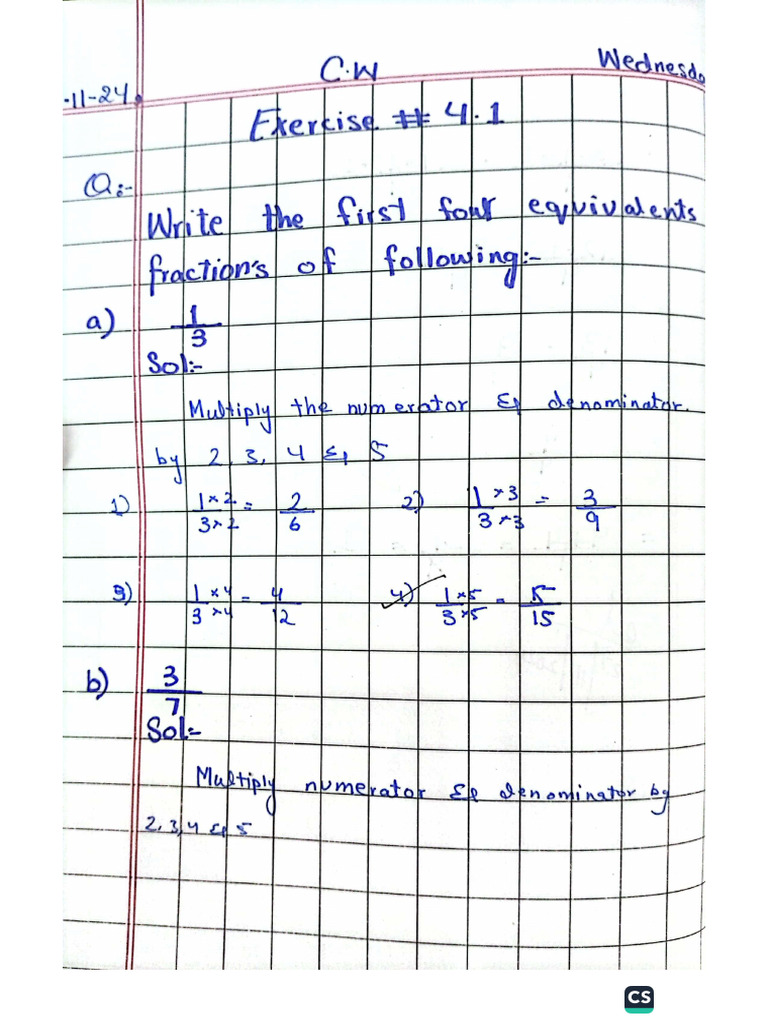 C.W Wednesda
-11-24
Exercise # 4.1
Q:-
Write the first four equivalents
fraction's of following:-
a) 1/3
Sol:-
Multiply the numerator & denominator.
by 2, 3, 4 & 5
1) 1×2/3×2 = 2/6 2) 1×3/3×3 = 3/9
3) 1×4/3×4 = 4/12 4) 1×5/3×5 = 5/15
b) 3/7
Sol:-
Multiply numerator & denominator by
2, 3, 4 & 5
CS